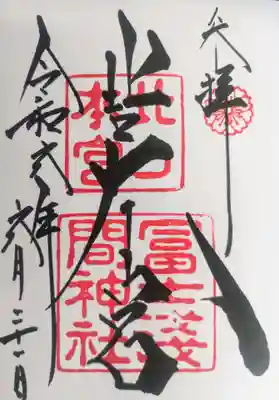 奉拝
北口
本宮
冨士淺
間神社
令和弐年六月二十一日